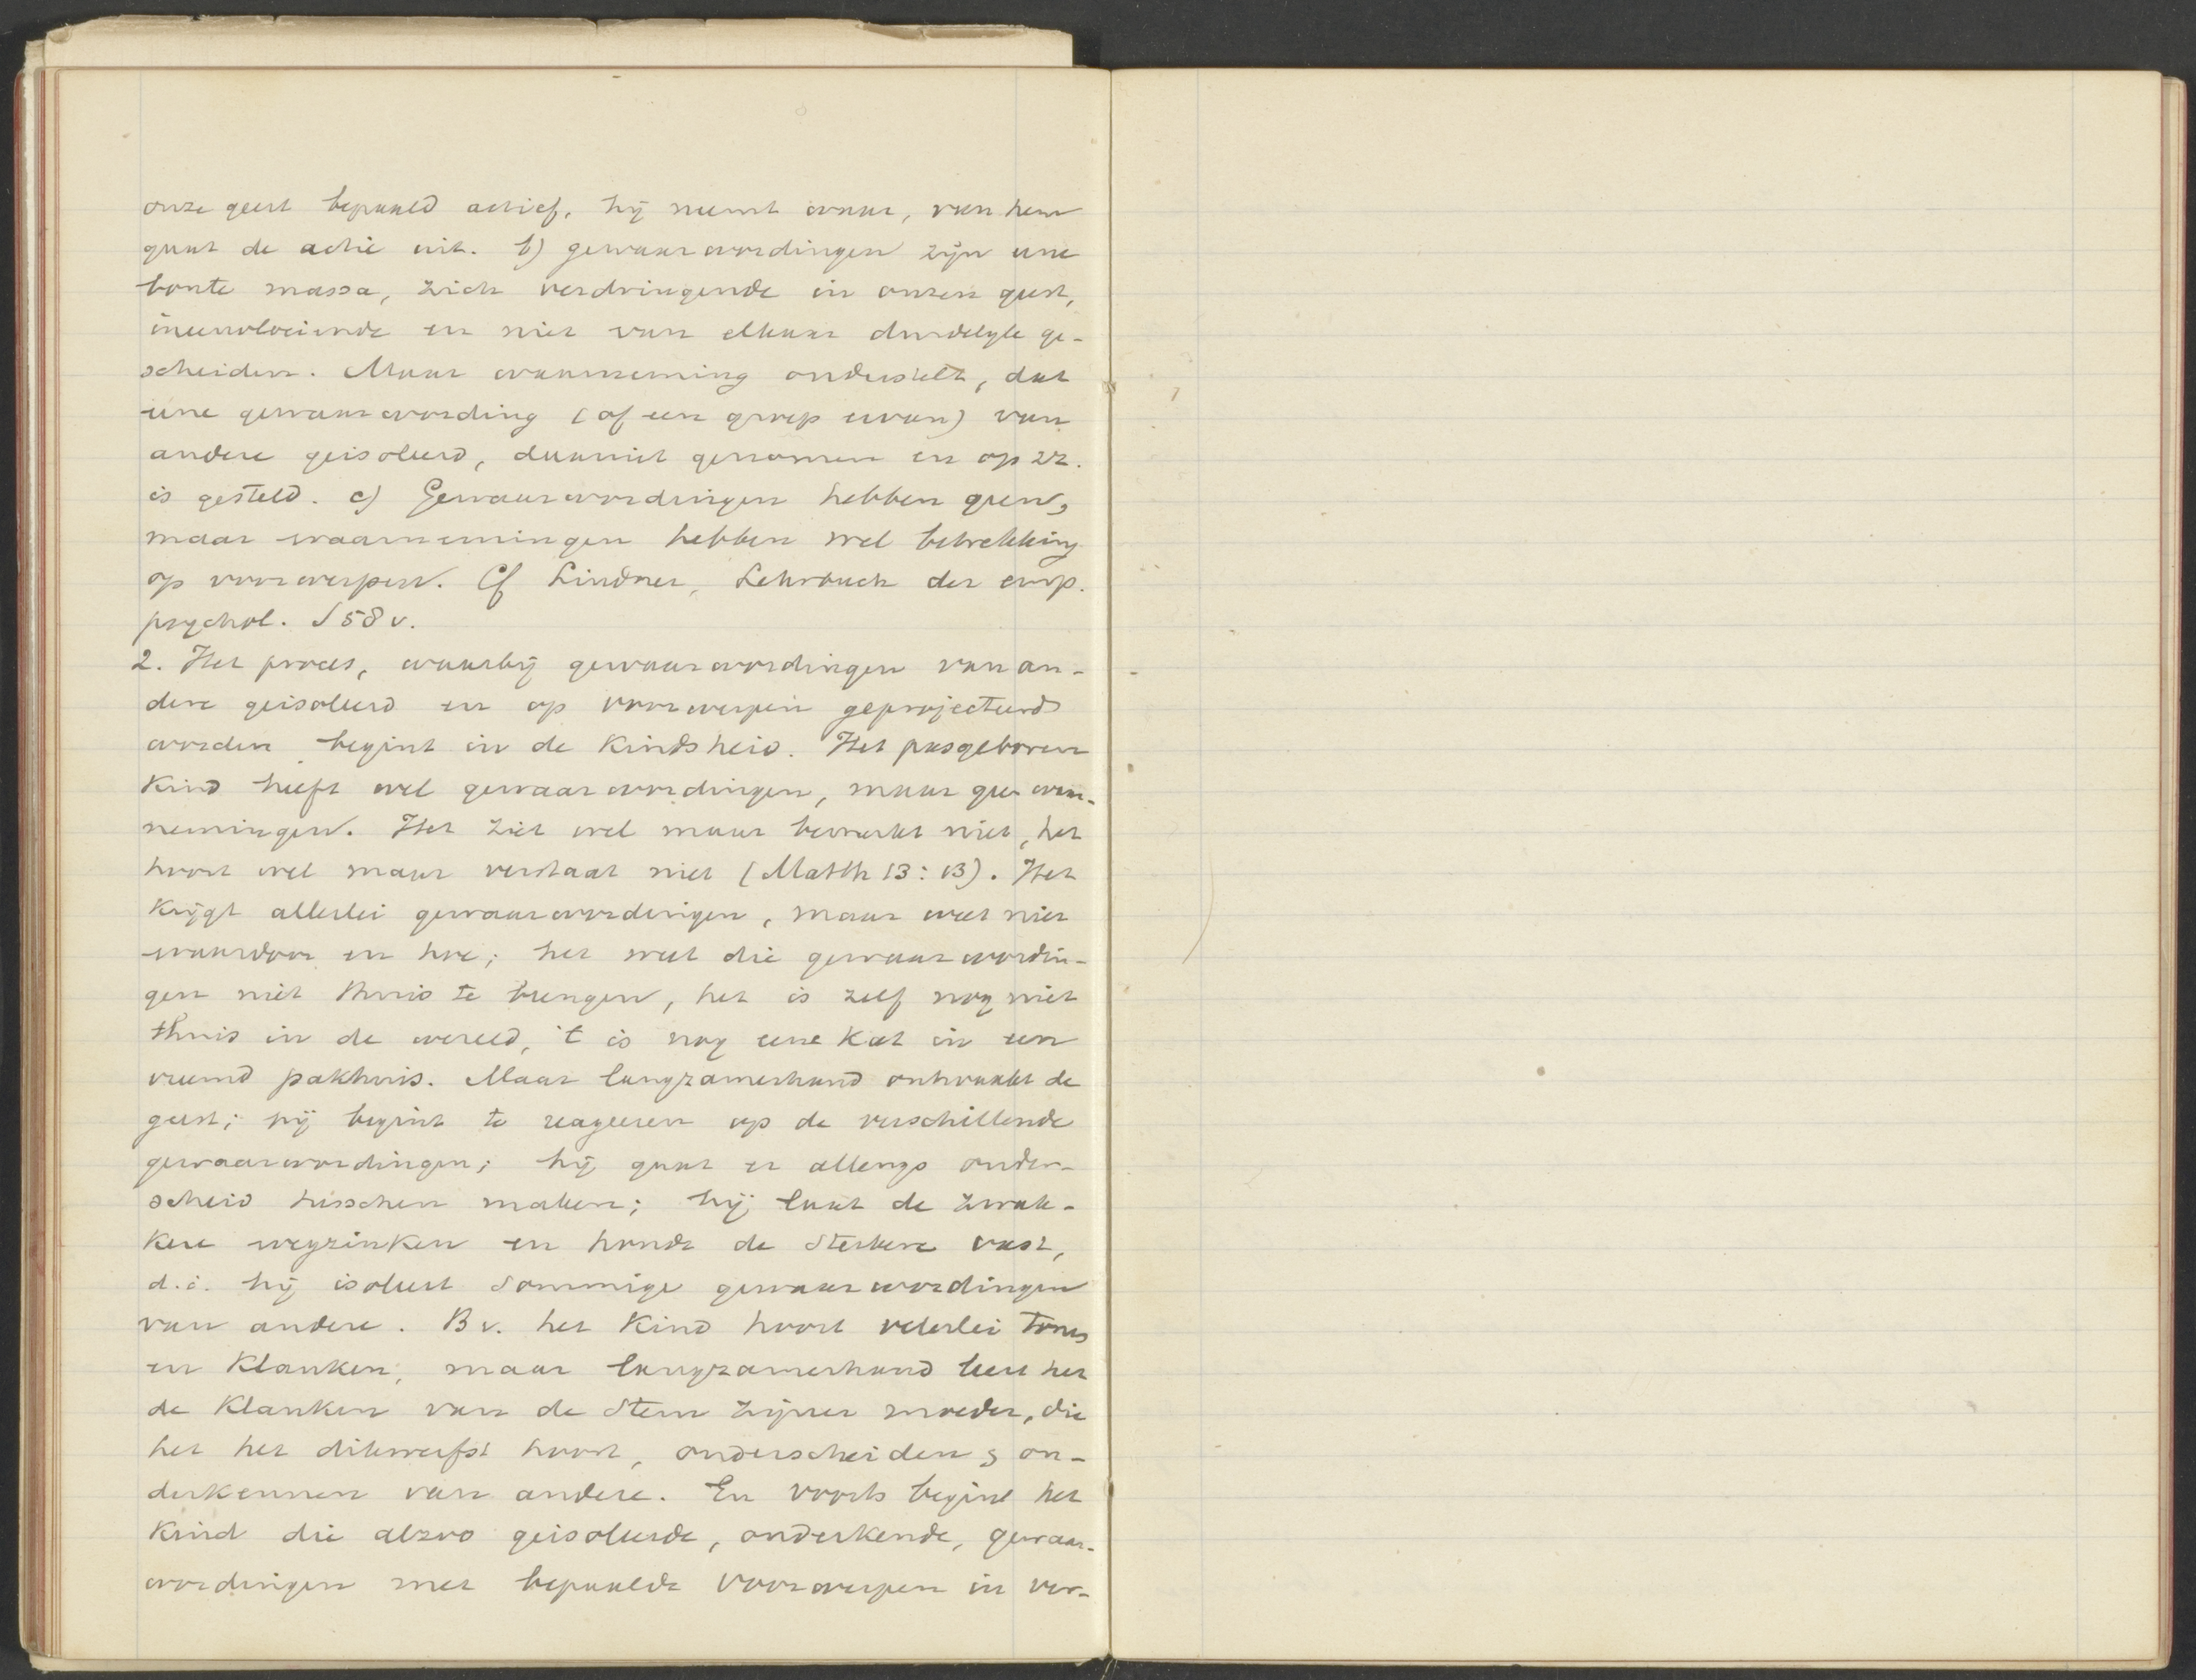 onze geest bepaald actief, hij neemt waar, van hem
gaat de actie uit. b) gewaarwordingen zijn eene
bonte massa, zich verdringende in onzen geest,
ineenvloeiende en niet van elkaar duidelyk ge-
scheiden. Maar waarneming onderstelt, dat
eene gewaarwording (of een groep ervan) van
andere geisoleerd, daaruit genomen en op zz.
is gesteld. c) Gewaarwordingen hebben geen,
maar waarnemingen hebben wel betrekking
op voorwerpen. Cf Lindner, Lehrbuch der emp.
psychol. § 58 v.
2. Het proces, waarbij gewaarwordingen van an-
dere geisoleerd en op voorwerpen geprojecteerd
worden begint in de Kindsheid. Het pasgeboren
Kind heeft wel gewaarwordingen, maar gee waar-
nemingen. Het ziet wel maar bemerkt niet, het
hoort wel maar verstaat niet (Matth 13:13). Het
Krijgt allerlei gewaarwordingen, maar weet niet
waardoor en hoe; het weet die gewaarwordin-
gen niet thuis te brengen, het is zelf nog niet
thuis in de wereld, 't is nog eene Kat in een
vreemd pakhuis. Maar langzamerhand ontwaakt de
geest; hij begint te reageeren op de verschillende
gewaarwordingen; hij gaat er allengs onder-
scheid tusschen maken; hij laat de zwak-
Kere wegzinken en houdt de sterkere vast,
d.i. hij isoleert sommige gewaarwordingen
van andere. Bv. het Kind hoort velerlei tonen
en Klanken, maar langzamerhand leert het
de Klanken van de stem zijner moeder, die
het het dikwerfst hoort, onderscheiden & on-
derkennen van andere. En voorts begint het
Kind die alzoo geisoleerde, onderkende, gewaar-
wordingen met bepaalde voorwerpen in ver-